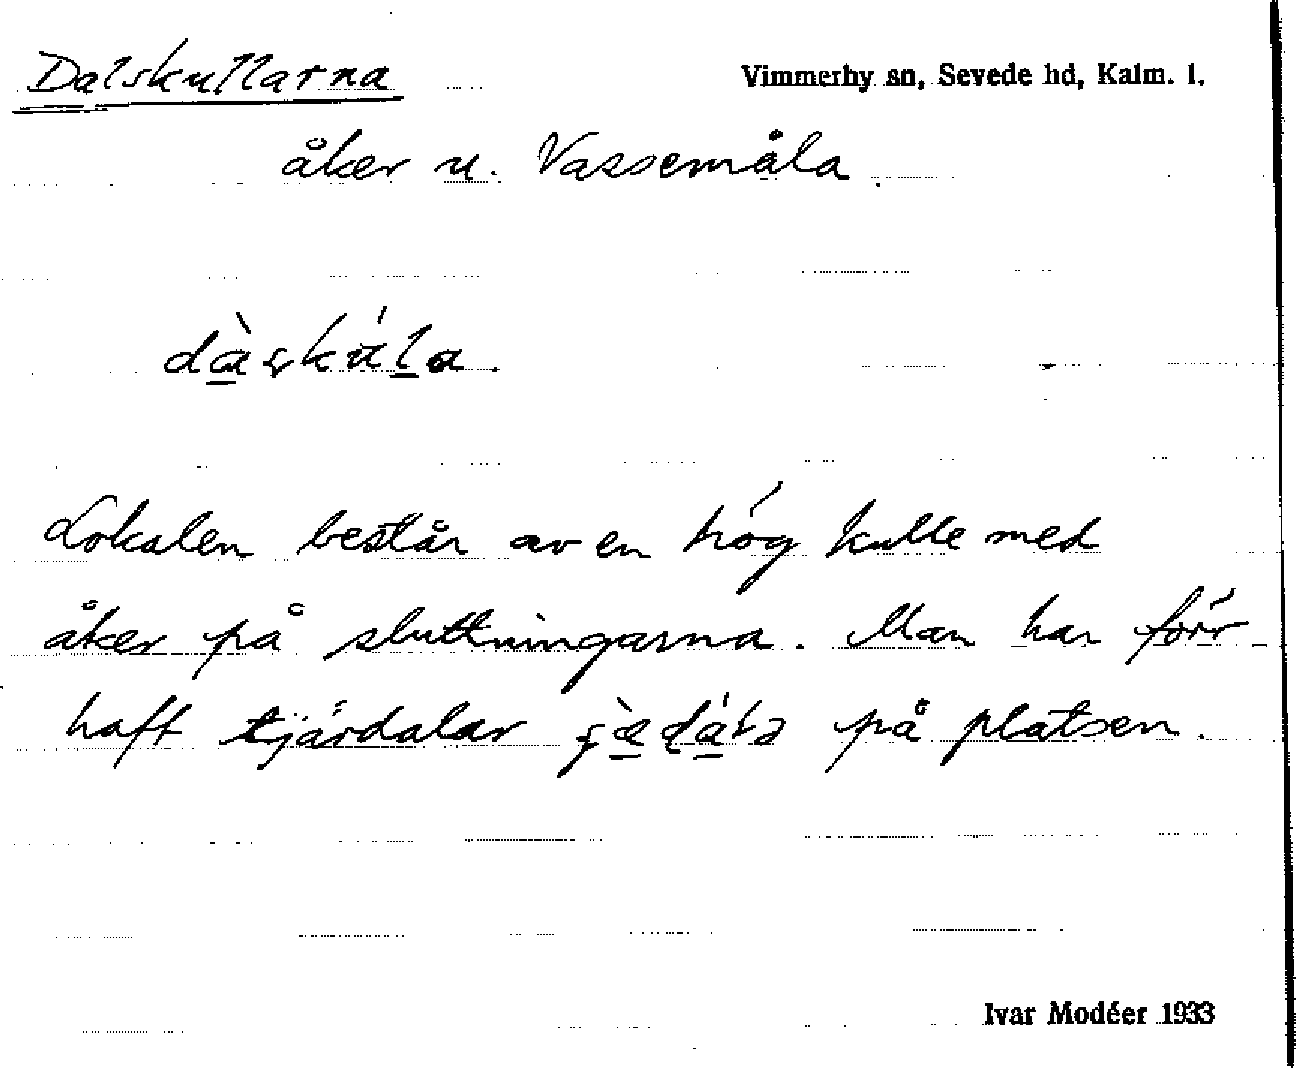 Dalskullarna
Vimmerby sn, Sevede hd, Kalm. l.
åker u. Vassemåla.
Lokalen består av en hög kulle med
åker på sluttningarna. Man har förr
haft tjärdalar på platsen.
Ivar Modéer 1933